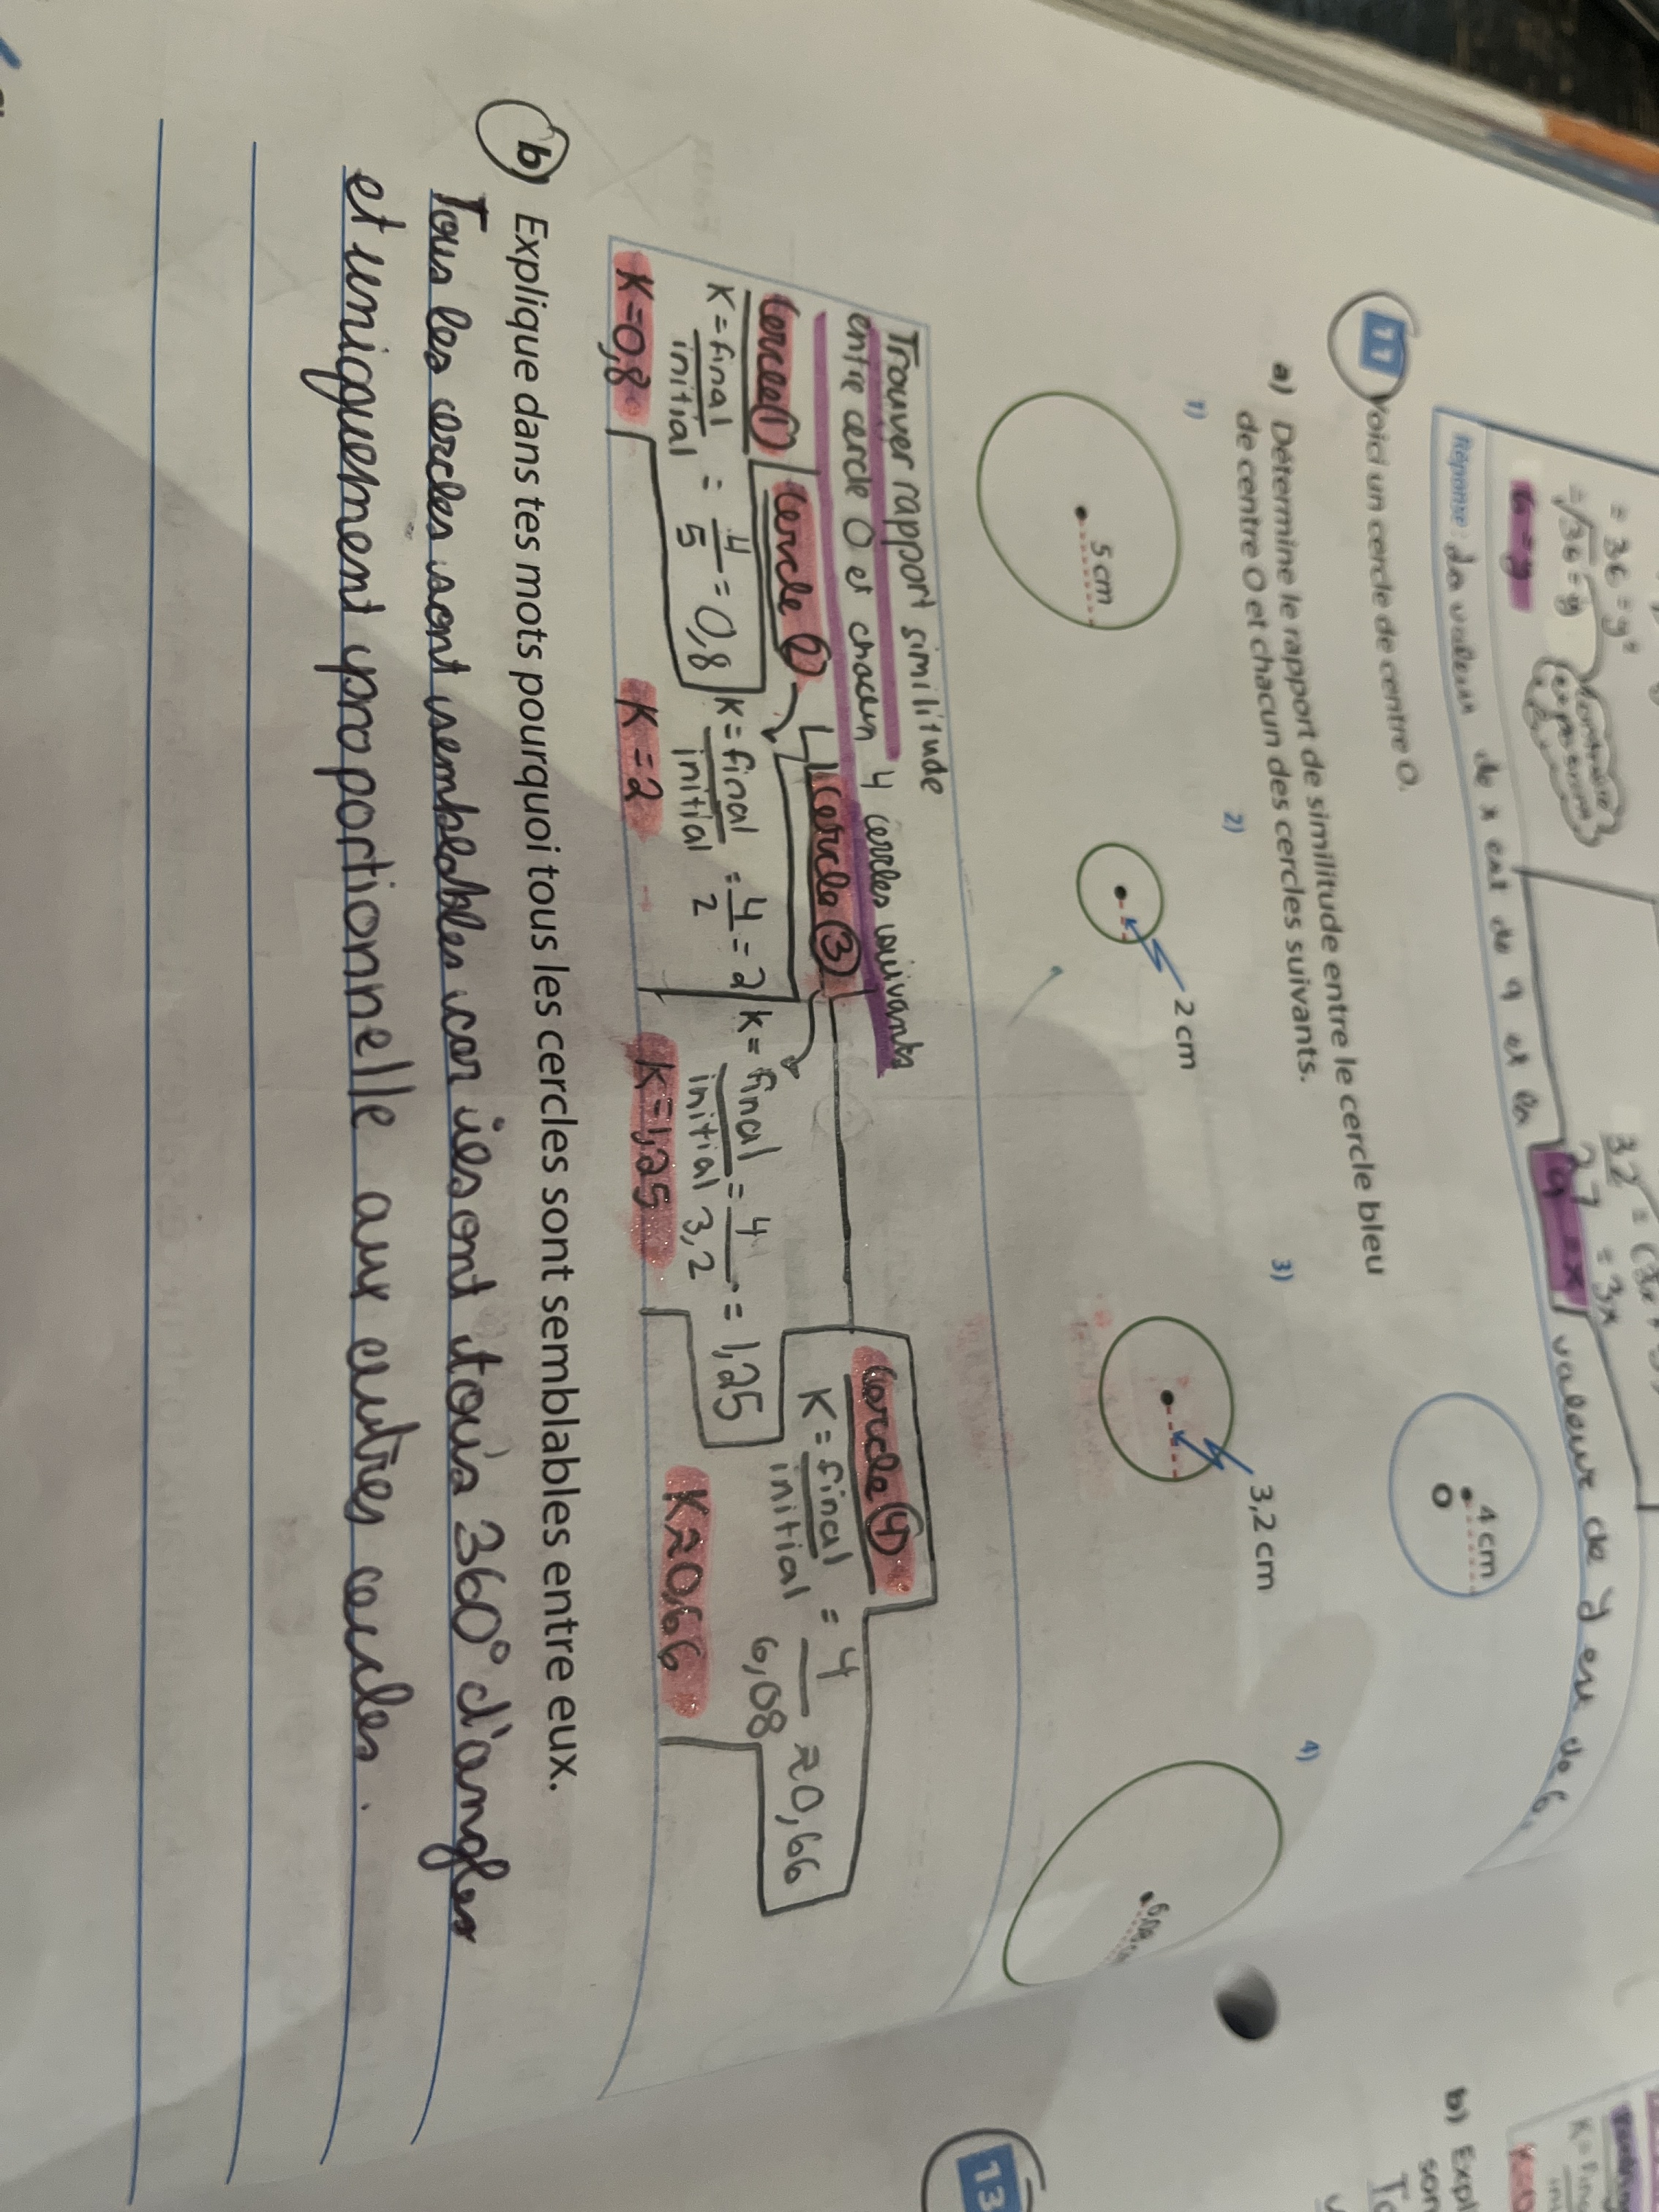 = 36 = y²
= √36 = y
6 = y
32
27 = 3x
9 = x
Réponse : La valeur de x est de 9 et la valeur de y est de 6.
11 Voici un cercle de centre O.
4 cm
O
a) Détermine le rapport de similitude entre le cercle bleu
de centre O et chacun des cercles suivants.
1)
2)
3)
4)
5 cm
2 cm
3,2 cm
Trouver rapport similitude
entre cercle O et chacun 4 cercles suivants
Cercle 1
Cercle 2
Cercle 3
Cercle 4
K = final / initial = 4/5 = 0,8
K = final / initial = 4/2 = 2
K = final / initial = 4/3,2 = 1,25
K = final / initial = 4/6,08 ≈ 0,66
K = 0,8
K = 2
K = 1,25
K ≈ 0,66
b) Explique dans tes mots pourquoi tous les cercles sont semblables entre eux.
Tous les cercles sont semblables car ils ont tous 360° d'angles
et uniquement proportionnelle aux autres cercles.
13
b) Expl
son